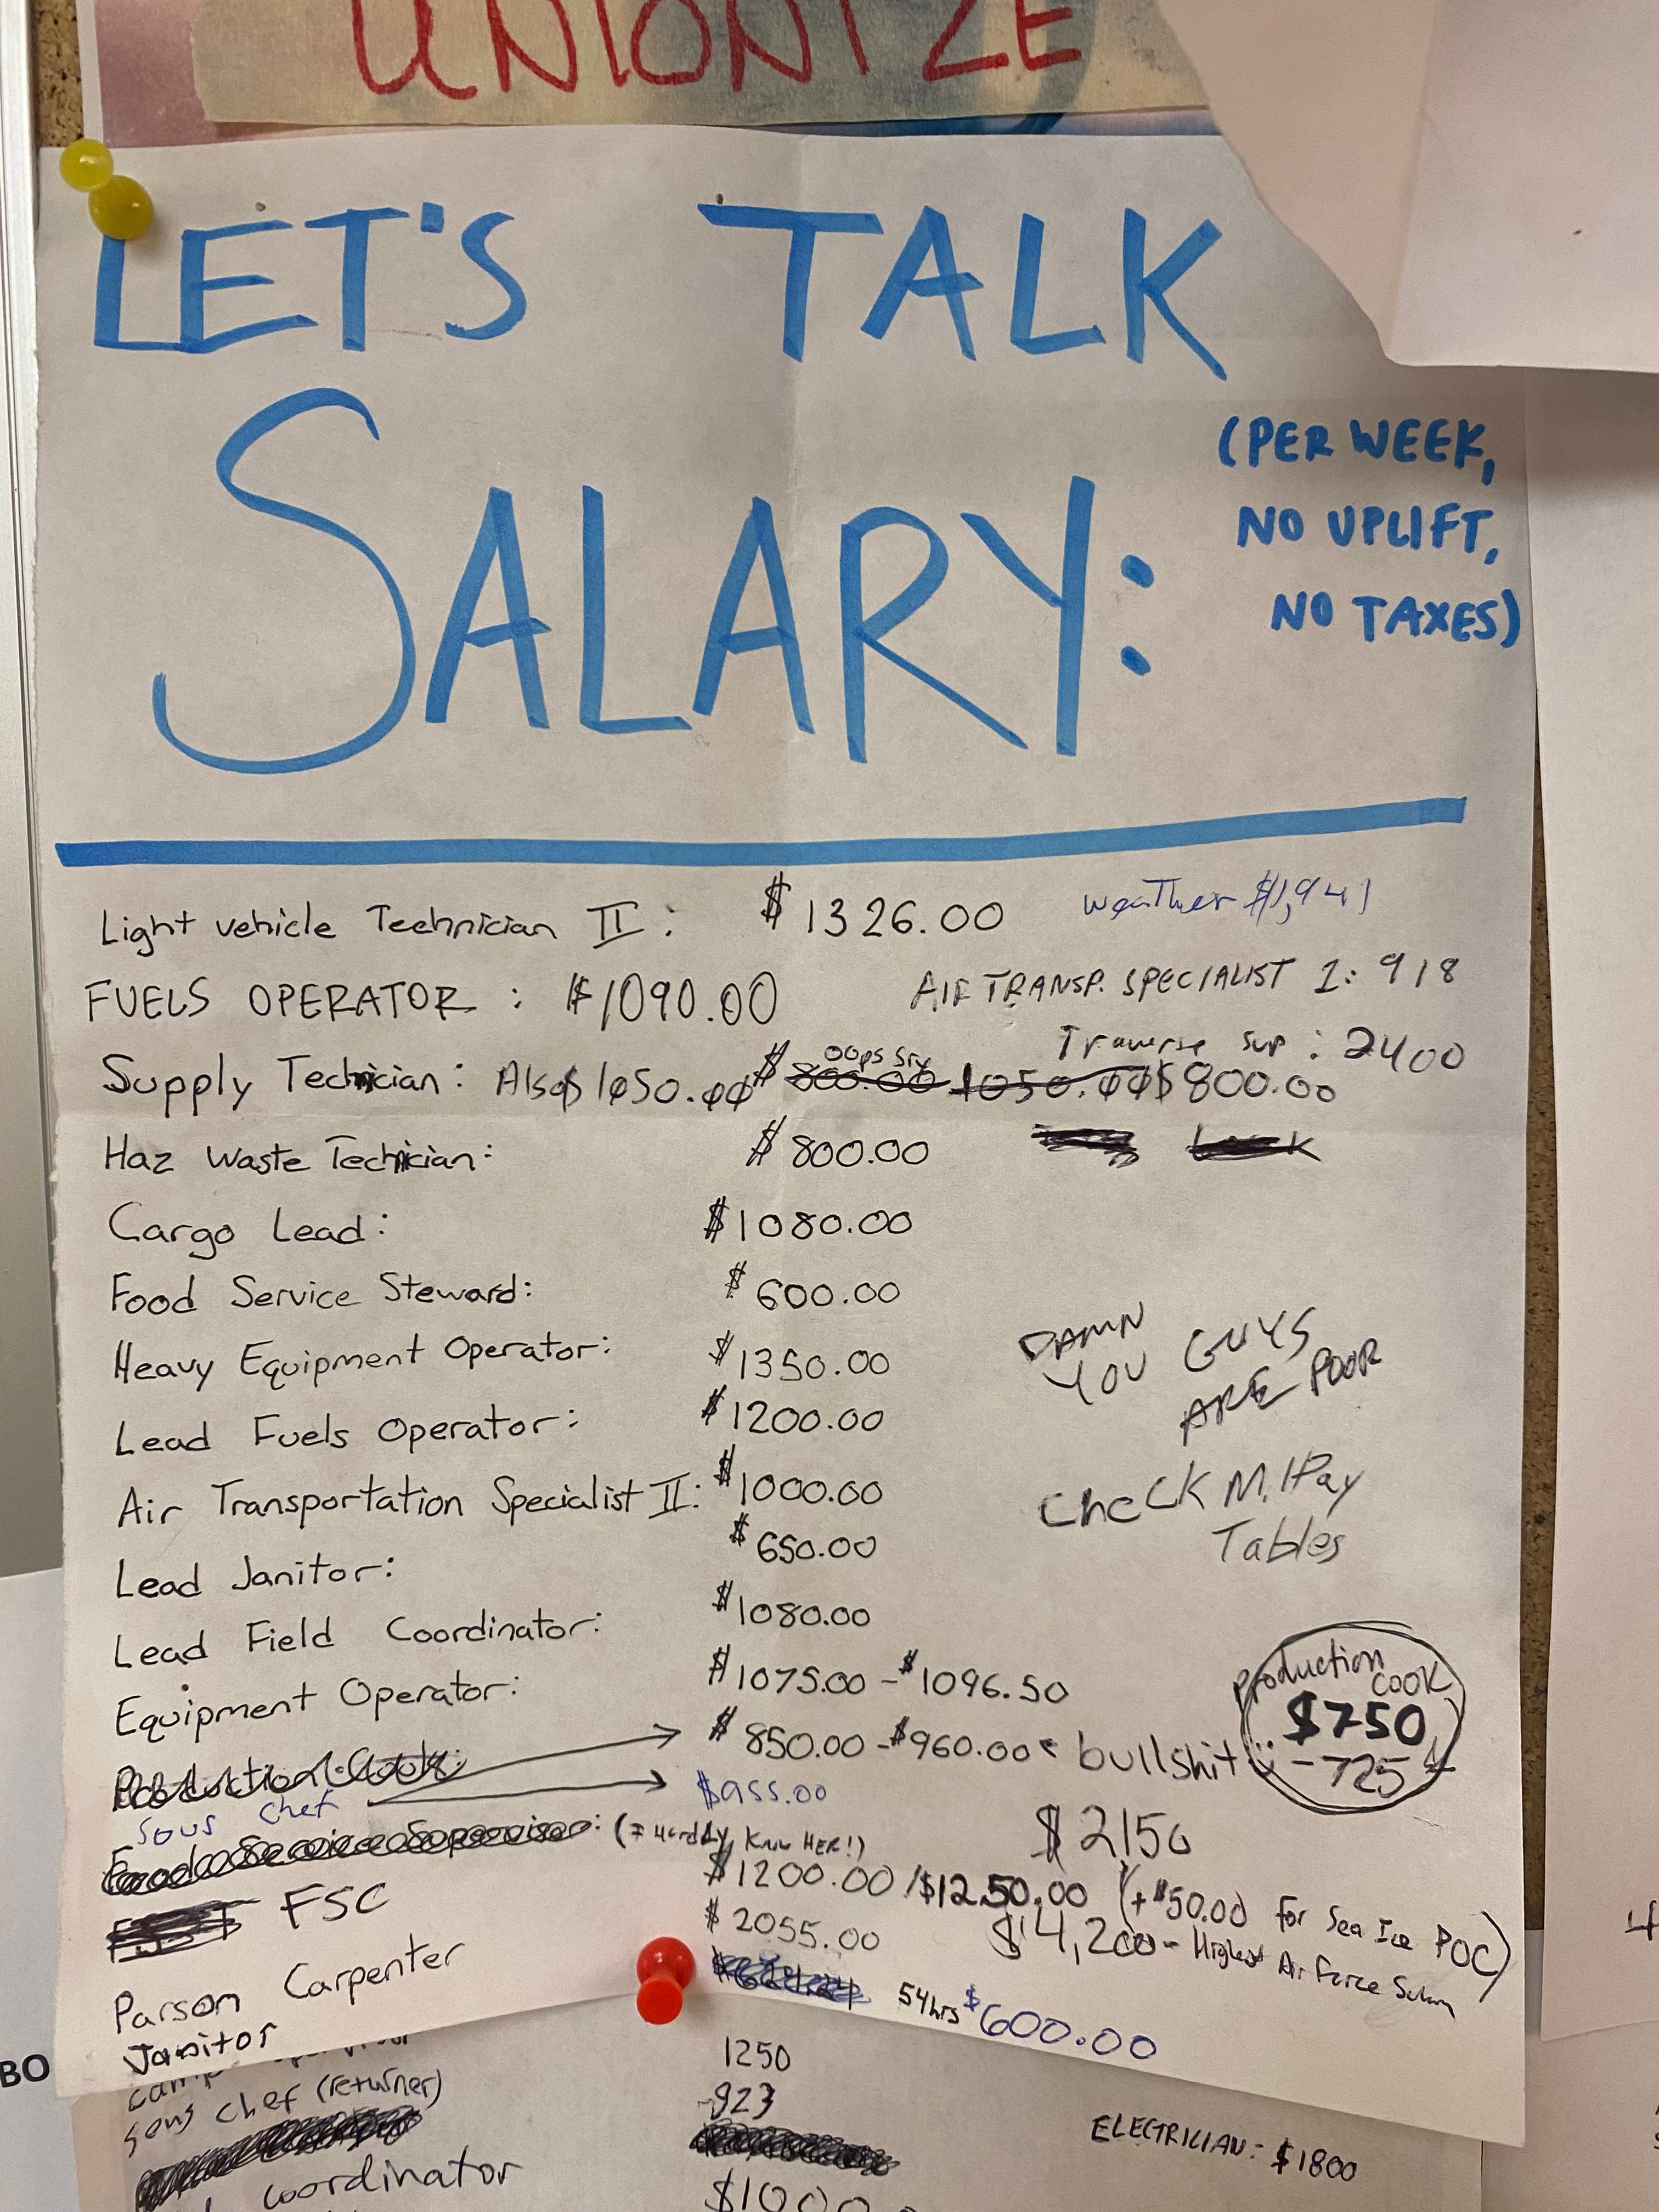 UNIONIZE
LET'S TALK
SALARY:
(PER WEEK,
NO UPLIFT,
NO TAXES)
Light vehicle Technician II: $1326.00
weather $1,941
FUELS OPERATOR: $1090.00
AIR TRANSP. SPECIALIST 1: 918
Traverse sup: 2400
oops sry
Supply Technician: Also $1050.00 $800.00 1050.00 $800.00
Haz Waste Technician: $800.00
Cargo Lead: $1080.00
Food Service Steward: $600.00
Heavy Equipment Operator: $1350.00
DAMN
YOU GUYS
ARE POOR
Lead Fuels Operator: $1200.00
Air Transportation Specialist II: $1000.00
Check Mil Pay
Tables
Lead Janitor: $650.00
Lead Field Coordinator: $1080.00
Equipment Operator: $1075.00 - $1096.50
Production
cook
$750
-725
Production Cook: $850.00 - $960.00 bullshit
Sous chef $955.00
Food Service Supervisor: (I HARDLY KNOW HER!)
$2150
FSC $1200.00/$1250.00 (+$50.00 for Sea Ice POC)
Parson Carpenter $2055.00
$4,200 - Highest Air Force Salary
Janitor 54hrs $600.00
BO
1250
sous chef (returner) 923
ELECTRICIAN: $1800
coordinator $1000